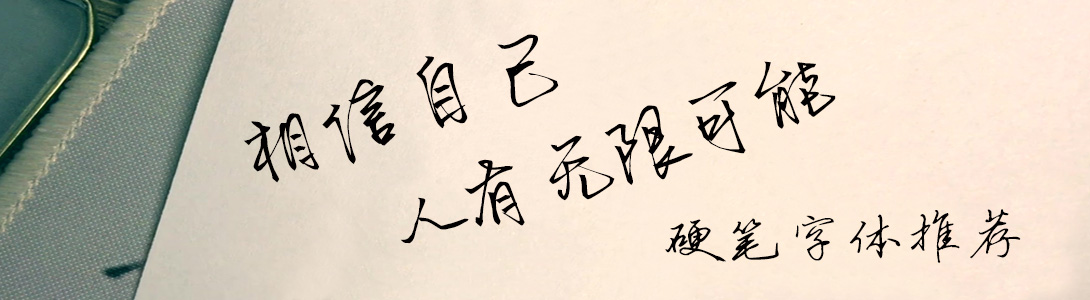 相信自己
人有无限可能
硬笔字体推荐